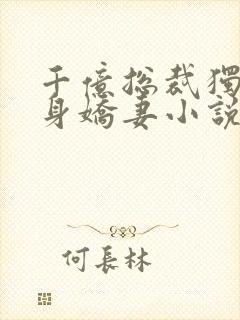 千億总裁獨
身嬌妻小説
何長林